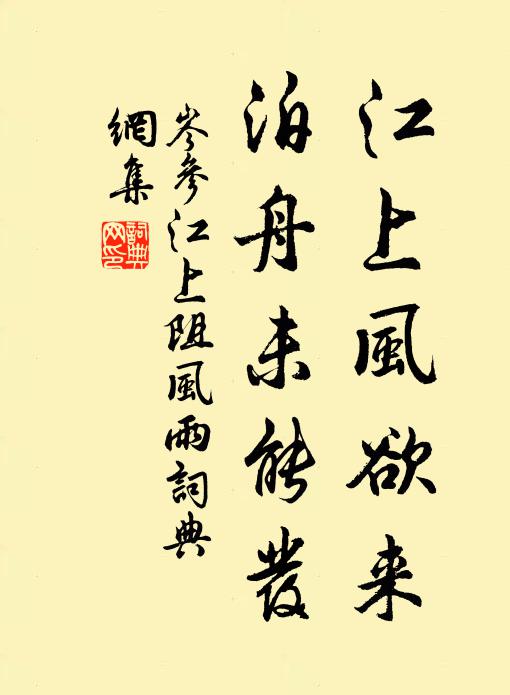 江上風欲来
泊舟未能發
岑參江上阻風雨詞典
網集
詞典
网印